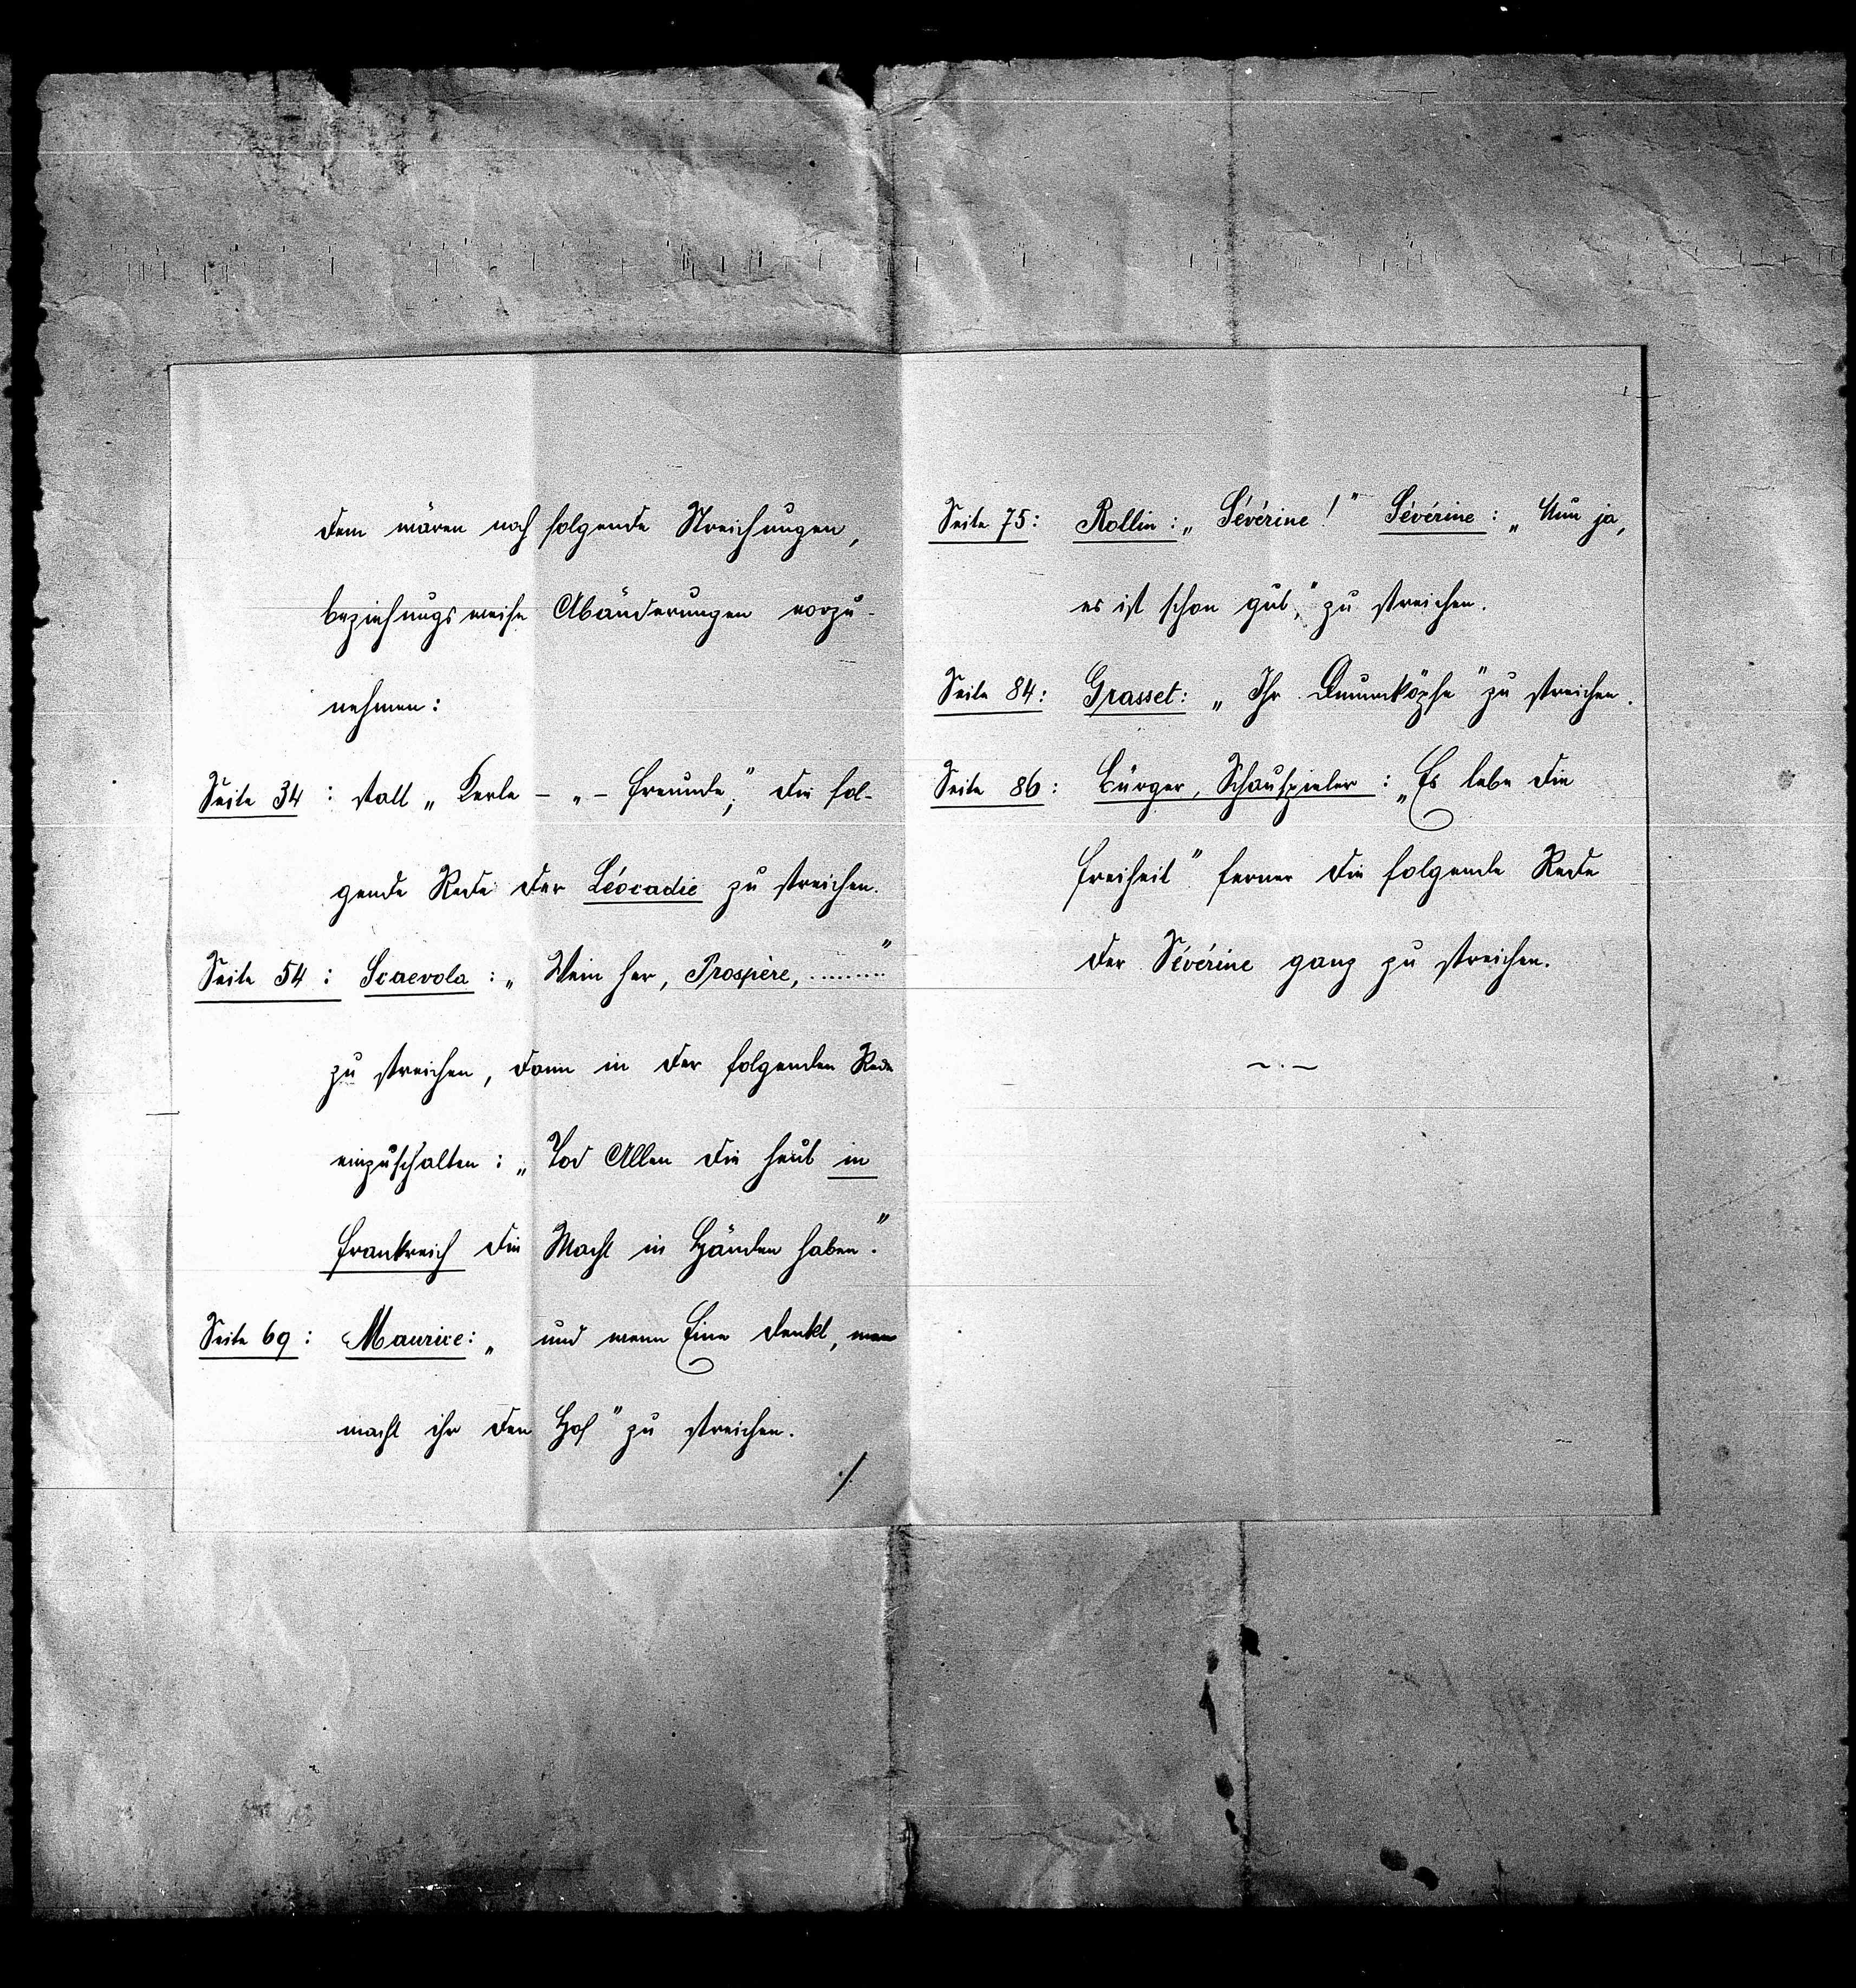 dem wären noch folgende Streichungen,
beziehungsweise Abänderungen vorzu-
nehmen:
Seite 34 : statt „Kerle – „ – Freunde“, die fol-
gende Rede der Léocadie zu streichen.
Seite 54 : Scaevola : „Wein her, Prospère, ........."
zu streichen, dann in der folgenden Rede
einzuschalten : „Tod Allen die heut in
Frankreich die Macht in Händen haben."
Seite 69 : Maurice: „ und wenn Eine denkt, man
macht ihr den Hof" zu streichen.
./.
Seite 75: Rollin : „Sévérine!" Sévérine : „Nun ja,
es ist schon gut," zu streichen.
Seite 84: Grasset: „Ihr Dummköpfe" zu streichen.
Seite 86: Bürger, Schauspieler : „Es lebe die
Freiheit" ferner die folgende Rede
der Sévérine ganz zu streichen.
~.~